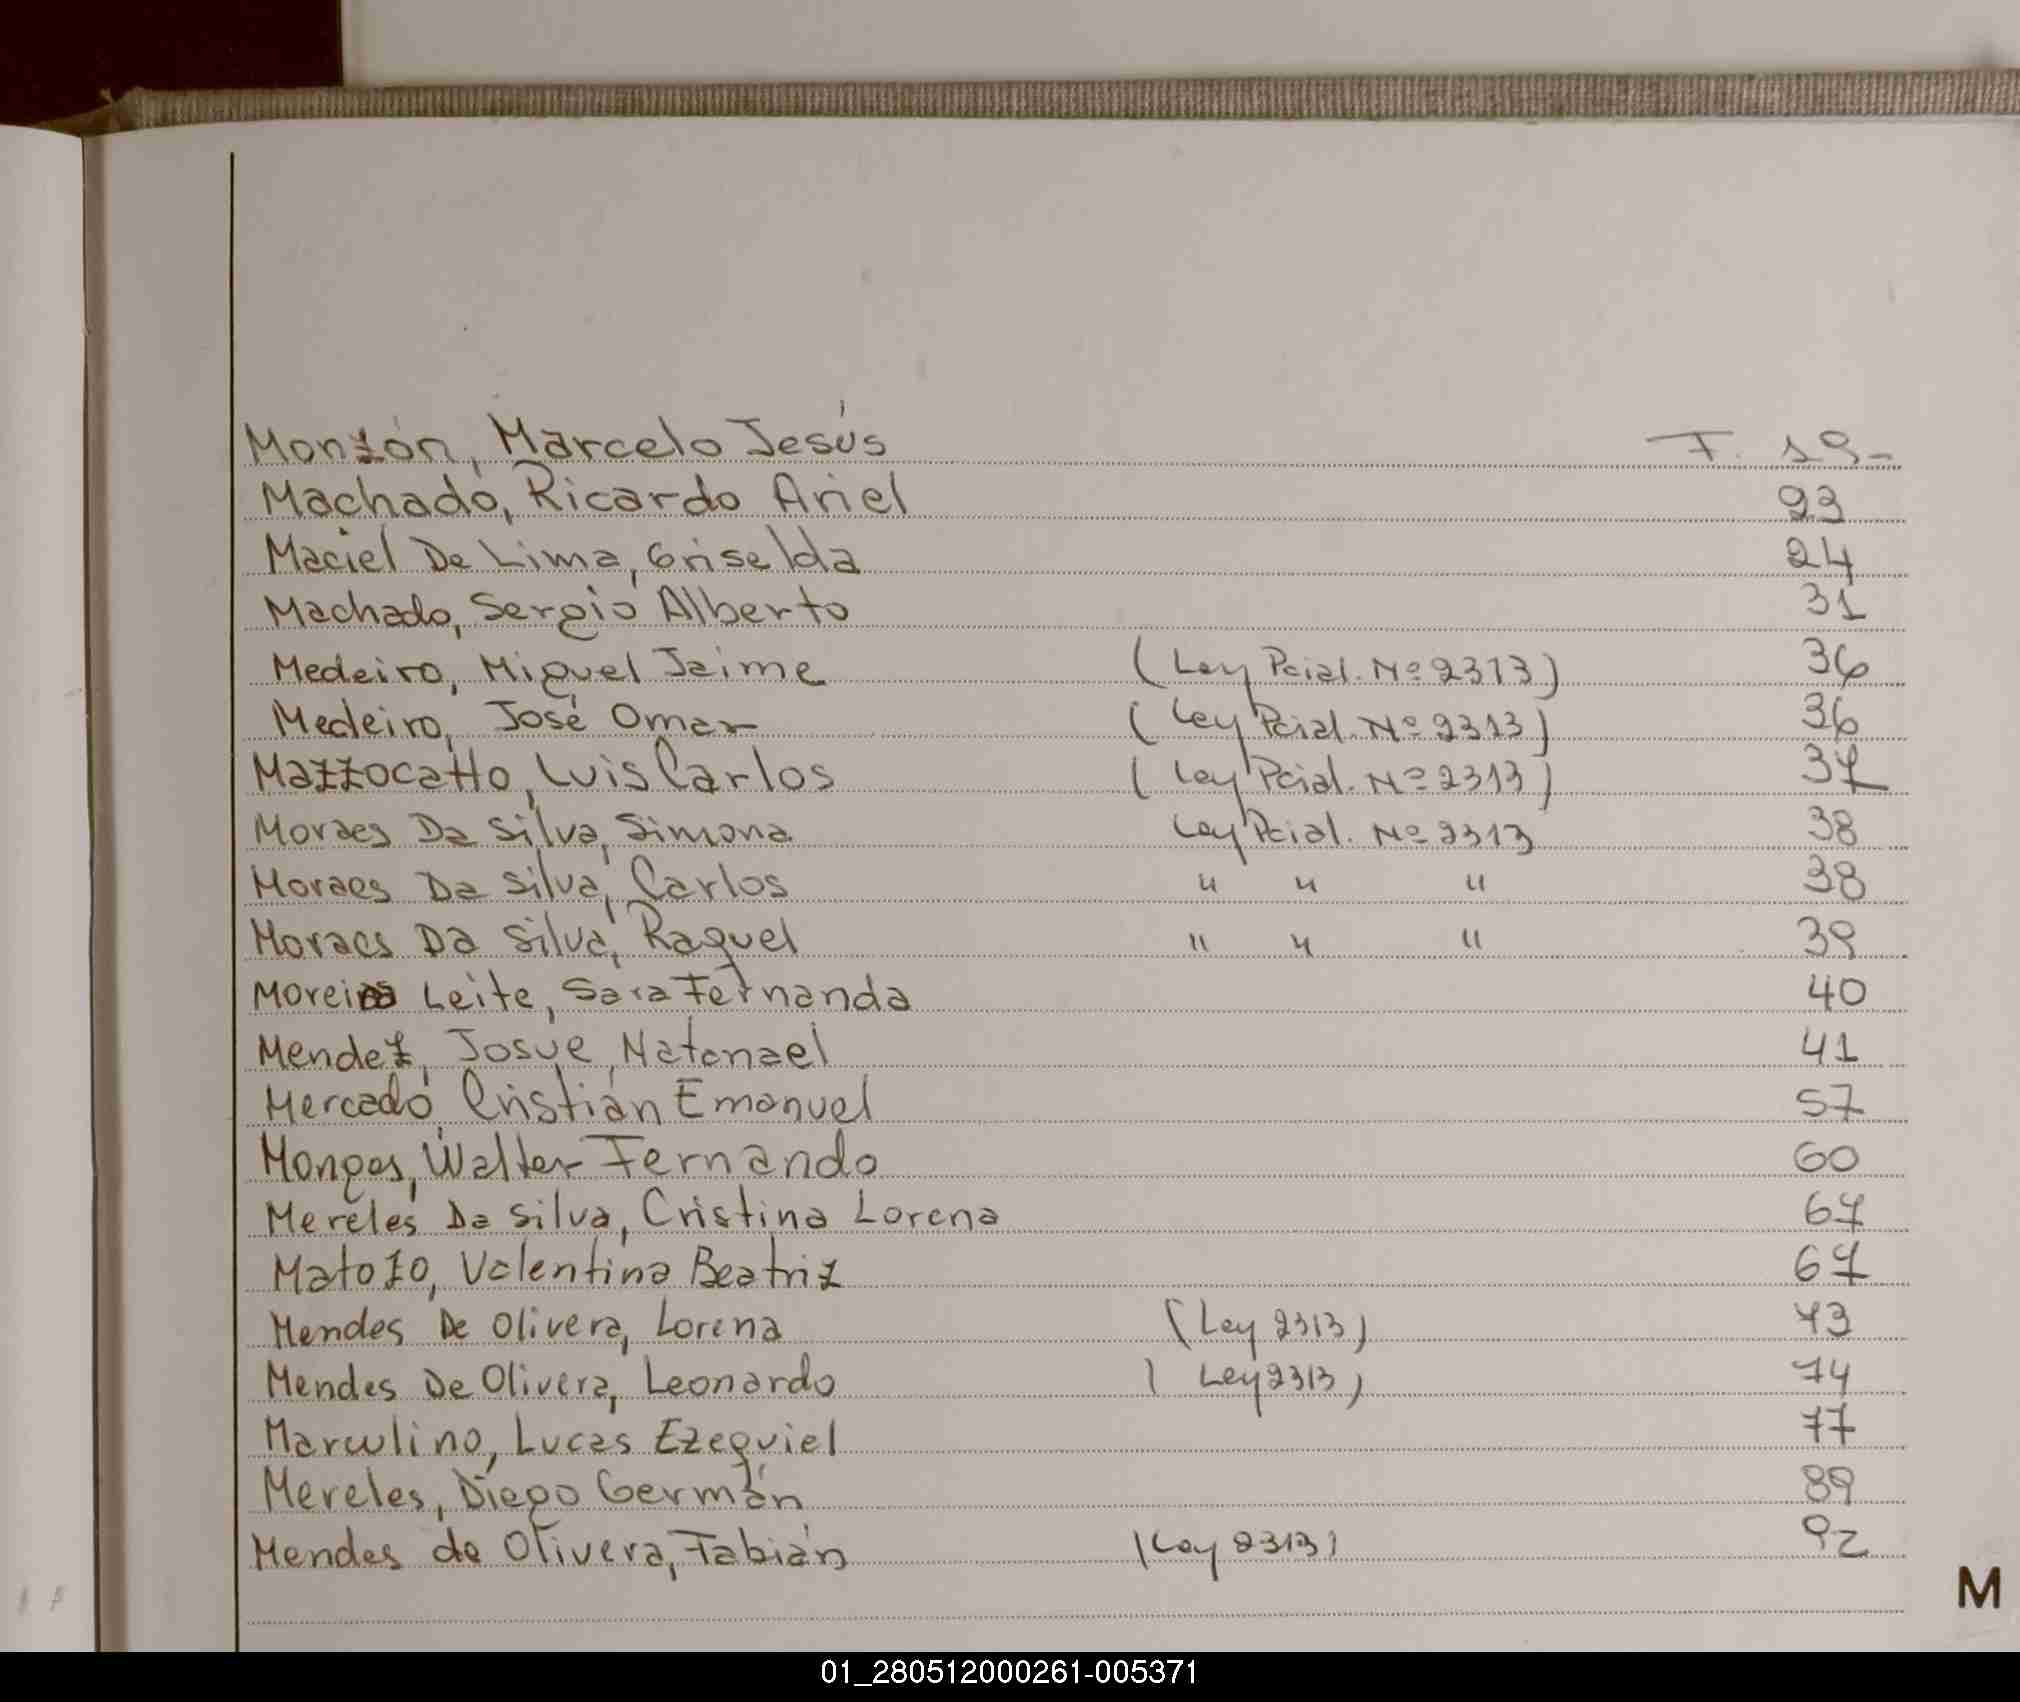 Monzón, Marcelo Jesús F. 19-
Machado, Ricardo Ariel 23
Maciel De Lima, Griselda 24
Machado, Sergio Alberto 31
Medeiro, Miguel Jaime (Ley Pcial. Nº 2313) 36
Medeiro, José Omar (Ley Pcial. Nº 2313) 36
Mazzocatto, Luis Carlos (Ley Pcial. Nº 2313) 37
Moraes Da Silva, Simona Ley Pcial. Nº 2313 38
Moraes Da Silva, Carlos " " " 38
Moraes Da Silva, Raquel " " " 39
Moreira Leite, Sara Fernanda 40
Mendez, Josue Natanael 41
Mercado, Cristián Emanuel 57
Monges, Walter Fernando 60
Mereles Da Silva, Cristina Lorena 67
Matozo, Valentina Beatriz 67
Mendes De Olivera, Lorena (Ley 2313) 73
Mendes De Olivera, Leonardo (Ley 2313) 74
Marculino, Lucas Ezequiel 77
Mereles, Diego Germán 89
Mendes de Olivera, Fabián (Ley 2313) 92
M
01_280512000261-005371